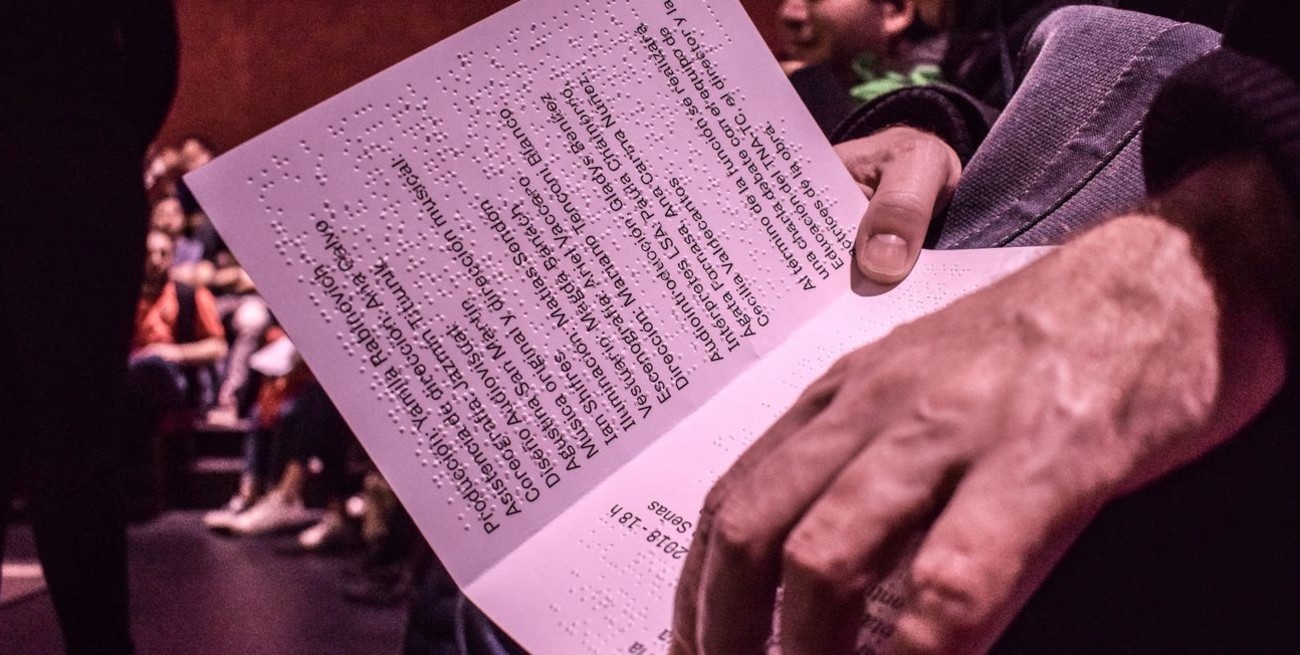 Producción: Yamila Rabinovich
Asistencia de dirección: Ana Calvo
Coreografía: Jazmín Titiunik
Diseño Audiovisual:
Agustina San Martín
Música original y dirección musical
Ian Shifres
Iluminación: Matías Sendón
Vestuario: Magda Banach
Escenografía: Ariel Vaccaro
Dirección: Mariano Tenconi Blanco
Audiointroducción: Gladys Benítez
Intérpretes LSA: Paula Chainferrio,
Ágata Fornasa, Ana Carina Núñez,
Cecilia Valdesantos
Al término de la función se realizará
una charla debate con el equipo de
Educación del TNA-TC, el director y la
actrices de la obra.
2018 - 18 h
Señas